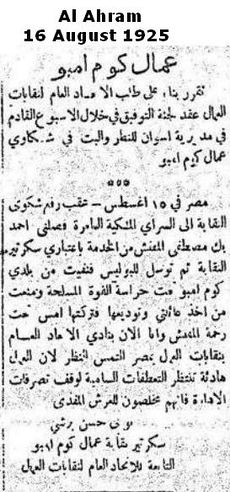 Al Ahram
16 August 1925
عمال كوم امبو
تقرر بناء على طلب الاتحاد العام لنقابات
العمال عقد لجنة التوفيق في خلال الاسبوع القادم
في مديرية اسوان للنظر والبت في شكاوي
عمال كوم امبو
***
مصر في ١٥ اغسطس – عقب رفع شكوى
النقابة الى السراي الملكية العامرة فصلنى احمد
بك مصطفى المفتش من الخدمة باعتباري سكرتير
النقابة ثم توسل للبوليس فنفيت من بلدي
كوم امبو تحت حراسة القوة المسلحة ومنعت
من اخذ عائلتي وتوديعها فتركتها امس تحت
رحمة المفتش وانا الان بنادي الاتحاد العام
بنقابات العمال بمصر التمس النظر لان العمال
هادئة تنتظر التعطفات السامية لوقف تصرفات
الادارة فانهم مخلصون للعرش المفدى
حسن برشي
سكرتير نقابة عمال كوم امبو
التابعة للاتحاد العام لنقابات العمال